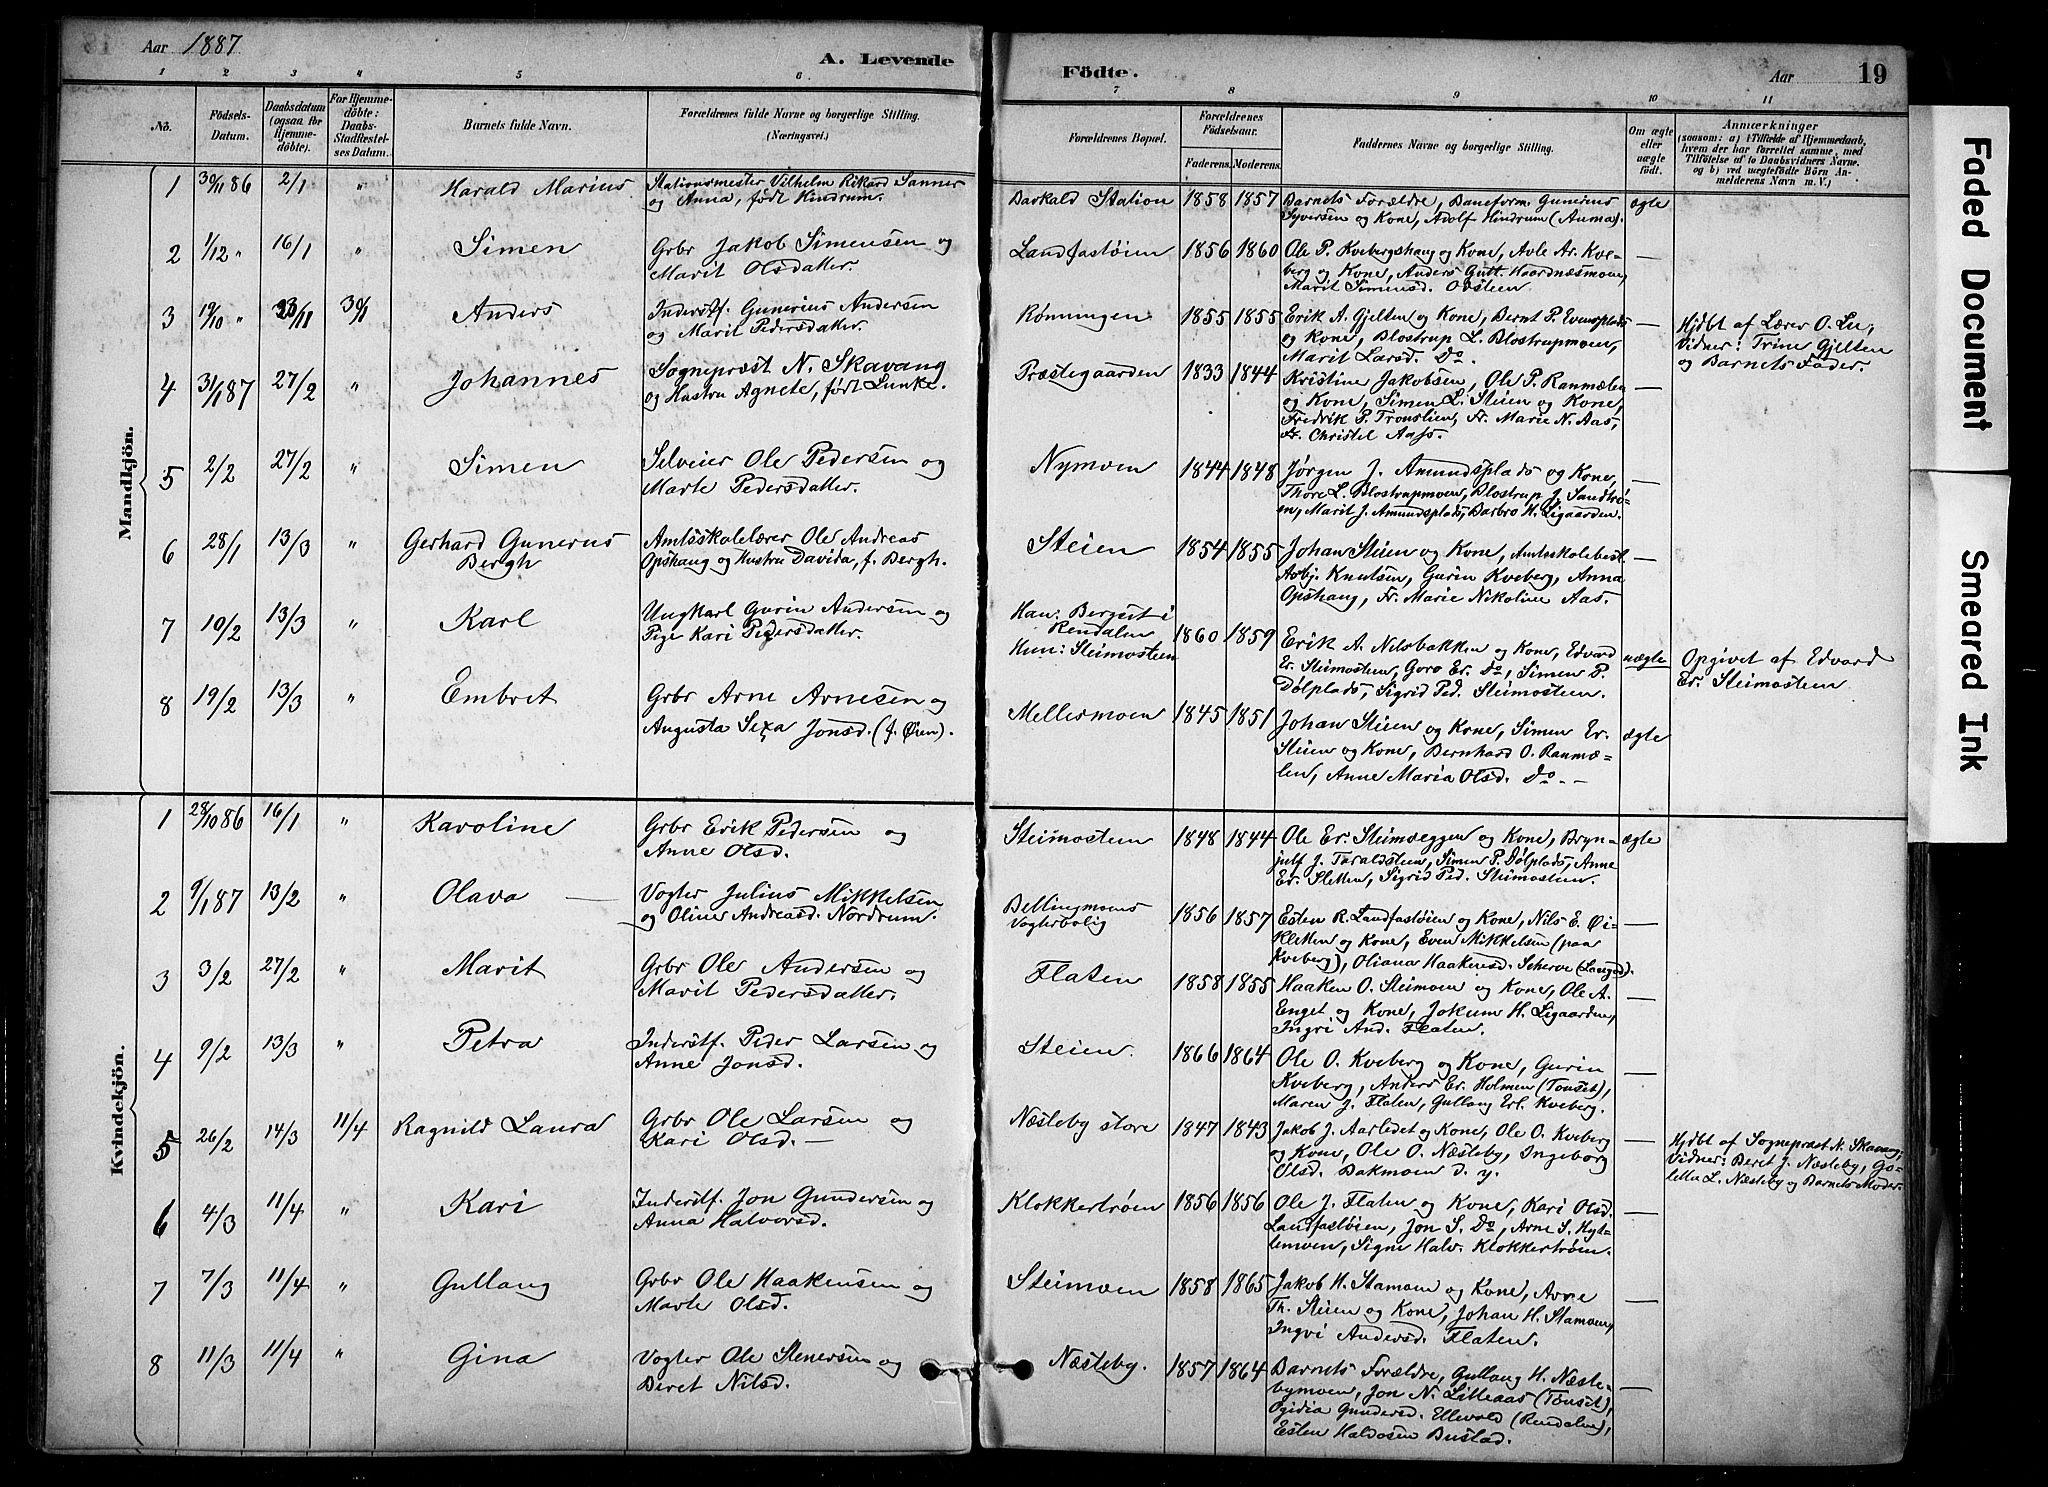 Aar 1887
A. Levende
Födte.
Aar
19
1 2 3 4 5 6 7 8 9 10 11
No.
Födsels-
Datum.
Daabsdatum
(ogsaa for
Hjemme-
döbte).
For Hjemme-
döbte:
Daabs-
Stadfæstel-
ses Datum.
Barnets fulde Navn.
Forældrenes fulde Navne og borgerlige Stilling.
(Næringsvei.)
Forældrenes Bopæl.
Forældrenes
Födselsaar.
Faderens. Moderens.
Faddernes Navne og borgerlige Stilling.
Om ægte
eller
uægte
født.
Anmærkninger
(saasom: a) i Tilfælde af Hjemmedaab,
hvem der har forrettet samme, med
Tilföielse af to Daabsvidners Navne,
og b) ved uægtefödte Börn An-
melderens Navn m. V.)
Mandkjön.
1 30/11 86 2/1 " Harald Marius
Stationsmester Vilhelm Rikard Sanner
og Anna, født Kindrum.
Barkald Station 1858 1857
Barnets Forældre, Baneform. Gunerius
Syversen og Kone, Adolf Hindrum (Anma).
ægte
2 1/12 " 16/1 " Simen
Grbr Jakob Simensen og
Marit Olsdatter.
Landfastøien 1856 1860
Ole P. Kvebergshaug og Kone, Avle Ar. Kve-
berg og Kone, Anders Gutt. Haardnæsmoen,
Marit Simensd. Odsteen
—
3 19/10 " 23/11 30/1 Anders
Inderstf. Gunerius Andersen
og Marit Pedersdatter.
Rønningen 1855 1855
Erik A. Gjelten og Kone, Bernt P. Evensplads
og Kone, Blostrup L. Blostrupmoen,
Marit Larsd. Do.
—
Hjdbt af Lærer O. Lie,
Vidner: Trine Gjelten
og Barnets Fader.
4 31/1 87 27/2 " Johannes
Sogneprest N. Skavang
og Hustru Agnete, født Lunke.
Præstegaarden 1833 1844
Kristine Jakobsen, Ole P. Ranmælen
og Kone, Simen L. Steien og Kone,
Fredrik P. Tronslien, Fr. Marie N. Aas,
Fr. Christel Aass.
—
5 2/2 27/2 " Simen
Selveier Ole Pedersen og
Marte Pedersdatter.
Nymoen 1844 1848
Jørgen J. Amundsplads og Kone,
Thore L. Blostrupmoen, Blostrup J. Sandtrø-
en, Marit J. Amundsplads, Barbro H. Ligaarden.
—
6 28/1 13/3 " Gerhard Gunerus
Bergh
Amtsskolelærer Ole Andreas
Opshaug og Hustru Davida, f. Bergh.
Steien 1854 1855
Johan Steien og Kone, Amtsskolebest.
Asbj. Knutsen, Gurin Kveberg, Anna
Opshaug, Fr. Marie Nikoline Aas.
—
7 10/2 13/3 " Karl
Ungkarl Gurin Andersen og
Pige Kari Pedersdatter.
Han: Bergset i
Rendalen
Hun: Steimosteen
1860 1859
Erik A. Nilsbakken og Kone, Edvard
Er. Steimosteen, Goro Er. Do, Simen P.
Dølplads, Sigrid Ped. Steimosteen.
uægte
Opgivet af Edvard
Er. Steimosteen
8 19/2 13/3 " Embret
Grbr Arne Arnesen og
Augusta Sexa Jonsd. (f. Øien).
Mellesmoen 1845 1851
Johan Steien og Kone, Simen Er.
Steien og Kone, Bernhard O. Ranmæ-
len, Anne Maria Olsd. Do. —
ægte
Kvindekjön.
1 28/10 86 16/1 " Karoline
Grbr Erik Pedersen og
Anne Olsd.
Steimosteen 1848 1844
Ole Er. Steimoeggen og Kone, Bryn-
julf J. Taraldsteen, Simen P. Dølplads, Anne
Er. Sletten, Sigrid Ped. Steimosteen.
ægte
2 9/1 87 13/2 " Olava —
Vogter Julius Mikkelsen
og Oline Andreasd. Nordrum.
Bellingmoens
Vogterbolig
1856 1857
Esten R. Landfastøien og Kone, Nils E. Øi-
kletten og Kone, Even Mikkelsen (paa
Kveberg), Oliana Haakensd. Scherve (Langød).
—
3 3/2 27/2 " Marit
Grbr Ole Andersen og
Marit Pedersdatter.
Flaten 1858 1855
Haaken O. Steimoen og Kone, Ole A.
Enget og Kone, Jokum H. Ligaarden,
Ingri And. Flaten.
—
4 9/2 13/3 " Petra
Inderstf. Peder Larsen og
Anne Jonsd.
Steien. 1866 1864
Ole O. Kveberg og Kone, Gurin
Kveberg, Anders Er. Holmen (Tønset),
Maren J. Flaten, Gullaug Erl. Kveberg.
—
5 26/2 14/3 11/4 Ragnild Laura
Grbr Ole Larsen og
Kari Olsd. —
Næsteby store 1847 1843
Jakob J. Aarledet og Kone, Ole O. Kveberg
og Kone, Ole O. Næsteby, Ingeborg
Olsd. Bakmoen d. y.
—
Hjdbt af Sogneprest N. Skavang,
Vidner: Beret J. Næsteby, Go-
lette L. Næsteby og Barnets Moder.
6 4/3 11/4 " Kari
Inderstf. Jon Gundersen og
Anna Halvorsd.
Klokkertrøen 1856 1856
Ole J. Flaten og Kone, Kari Olsd.
Landfastøien, Jon S. Do, Arne S. Hyt-
temoen, Signe Halv. Klokkertrøen.
—
7 7/3 11/4 " Gullaug
Grbr Ole Haakensen og
Marte Olsd.
Steimoen 1858 1865
Jakob H. Stamoen og Kone, Arne
Th. Steien og Kone, Johan H. Stamoen,
Ingri Andersd. Flaten.
—
8 11/3 11/4 " Gina
Vogter Ole Stenersen og
Beret Nilsd.
Næsteby. 1857 1864
Barnets Forældre, Gullaug H. Næste-
bymoen, Jon N. Litleaas (Tønset),
Ogidia Gundersd. Ellevold (Rendalen),
Esten Haldosen Bustad.
—
Faded Document
Smeared Ink